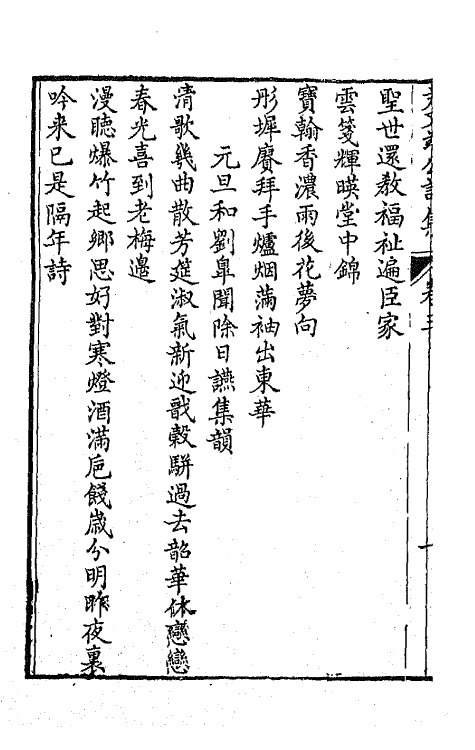 聖世還教福祉遍臣家
雲箋輝暎堂中錦
寶翰香濃雨後花夢向
彤墀賡拜手爐烟滿袖出東華
元旦和劉臯聞除日讌集韻
清歌幾曲散芳筵淑氣新迎戩穀駢過去韶華休戀戀
春光喜到老梅邊
漫聽爆竹起鄉思好對寒燈酒滿巵餞歲分明昨夜裏
吟来已是隔年詩